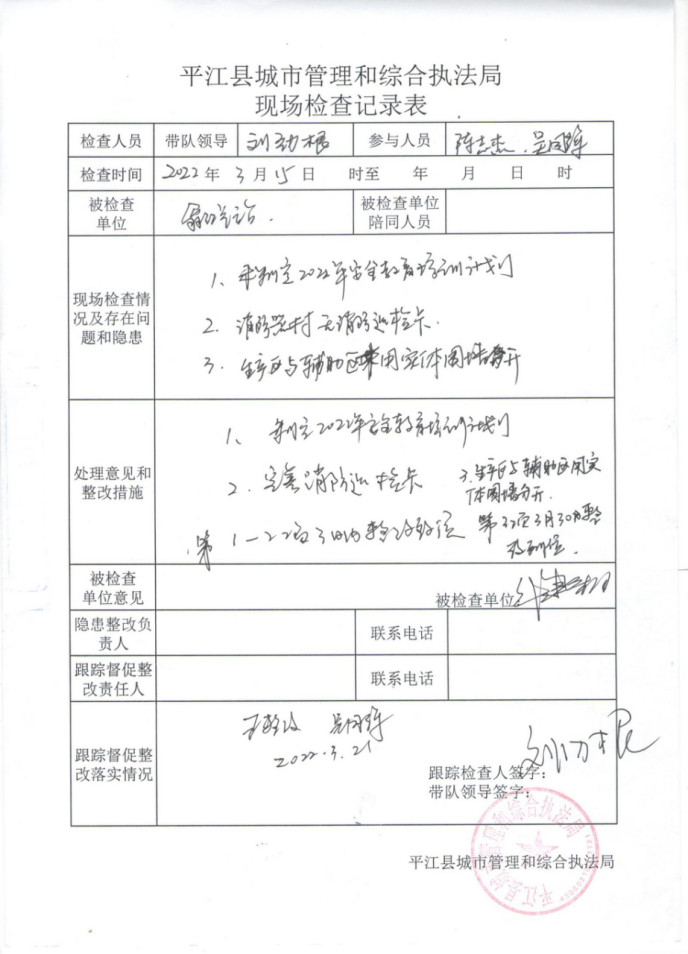 平江县城市管理和综合执法局
现场检查记录表
检查人员 带队领导 刘劲根 参与人员 陈志杰
检查时间 2022年3月15日 时至 年 月 日 时
被检查单位 被检查单位陪同人员
现场检查情况及存在问题和隐患
1、未制定2022年安全教育培训计划
2、消防器材无消防巡检卡.
3、生产区与辅助区未用实体围墙分开
处理意见和整改措施
1、制定2022年安全教育培训计划
2、完善消防巡检卡
3.生产区与辅助区用实
体围墙分开.
第1-2项3日内整改到位
第3项3月30日整
改到位.
被检查单位意见 被检查单位
隐患整改负责人 联系电话
跟踪督促整改责任人 联系电话
跟踪督促整改落实情况
整改
2022.3.21
跟踪检查人签字:
带队领导签字:
平江县城市管理和综合执法局
平江县城市管理和综合执法局